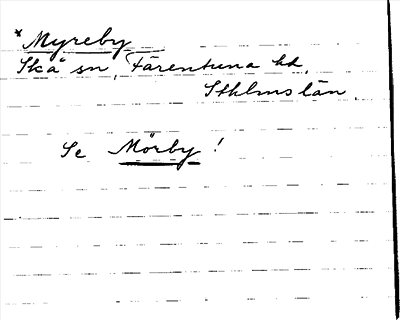 * Myreby
Skå sn, Färentuna hd,
Sthlms län.
Se Mörby!